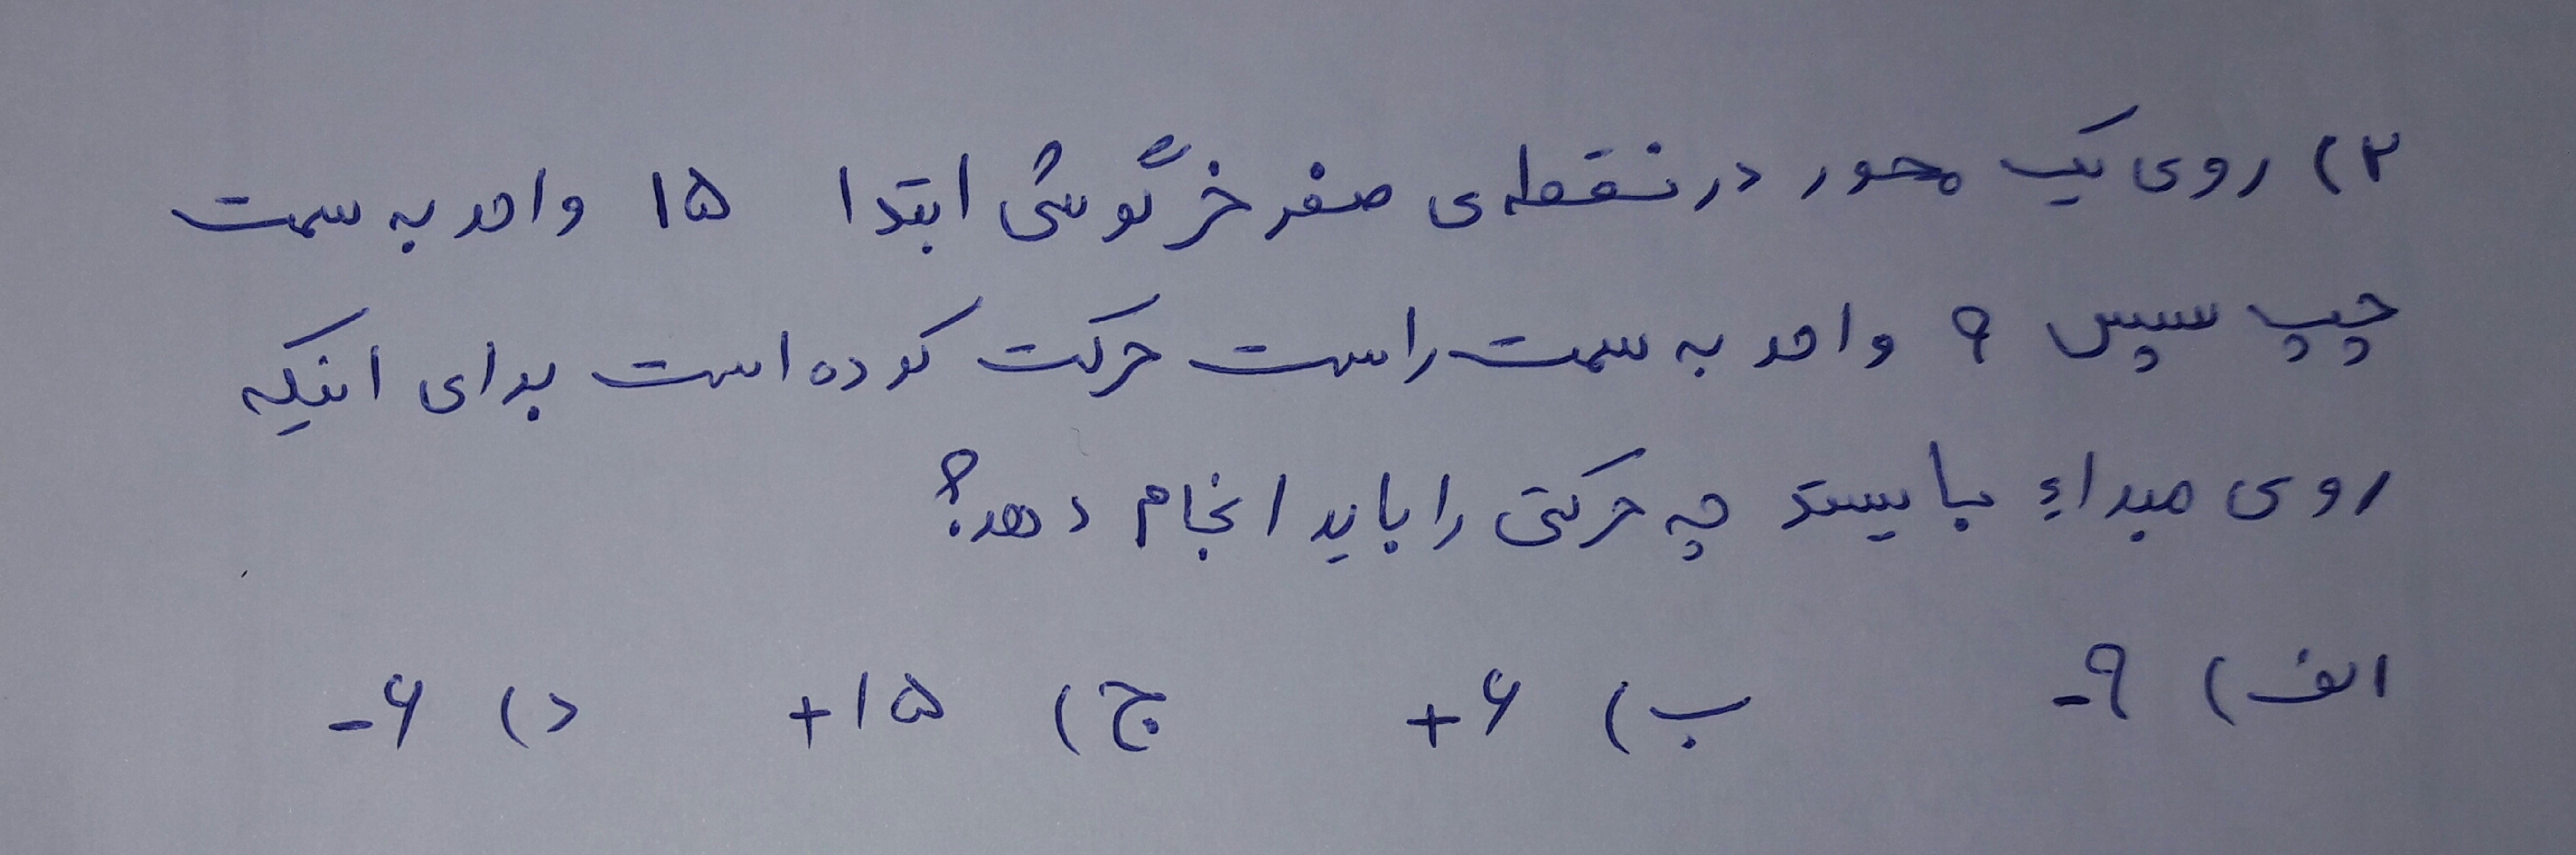 ۲) روی یک محور در نقطه‌ی صفر خرگوشی ابتدا ۱۵ واحد به سمت
چپ سپس ۹ واحد به سمت راست حرکت کرده است برای اینکه
روی مبداء بایستد چه حرکتی را باید انجام دهد؟
الف) -۹ ب) +۶ ج) +۱۵ د) -۶